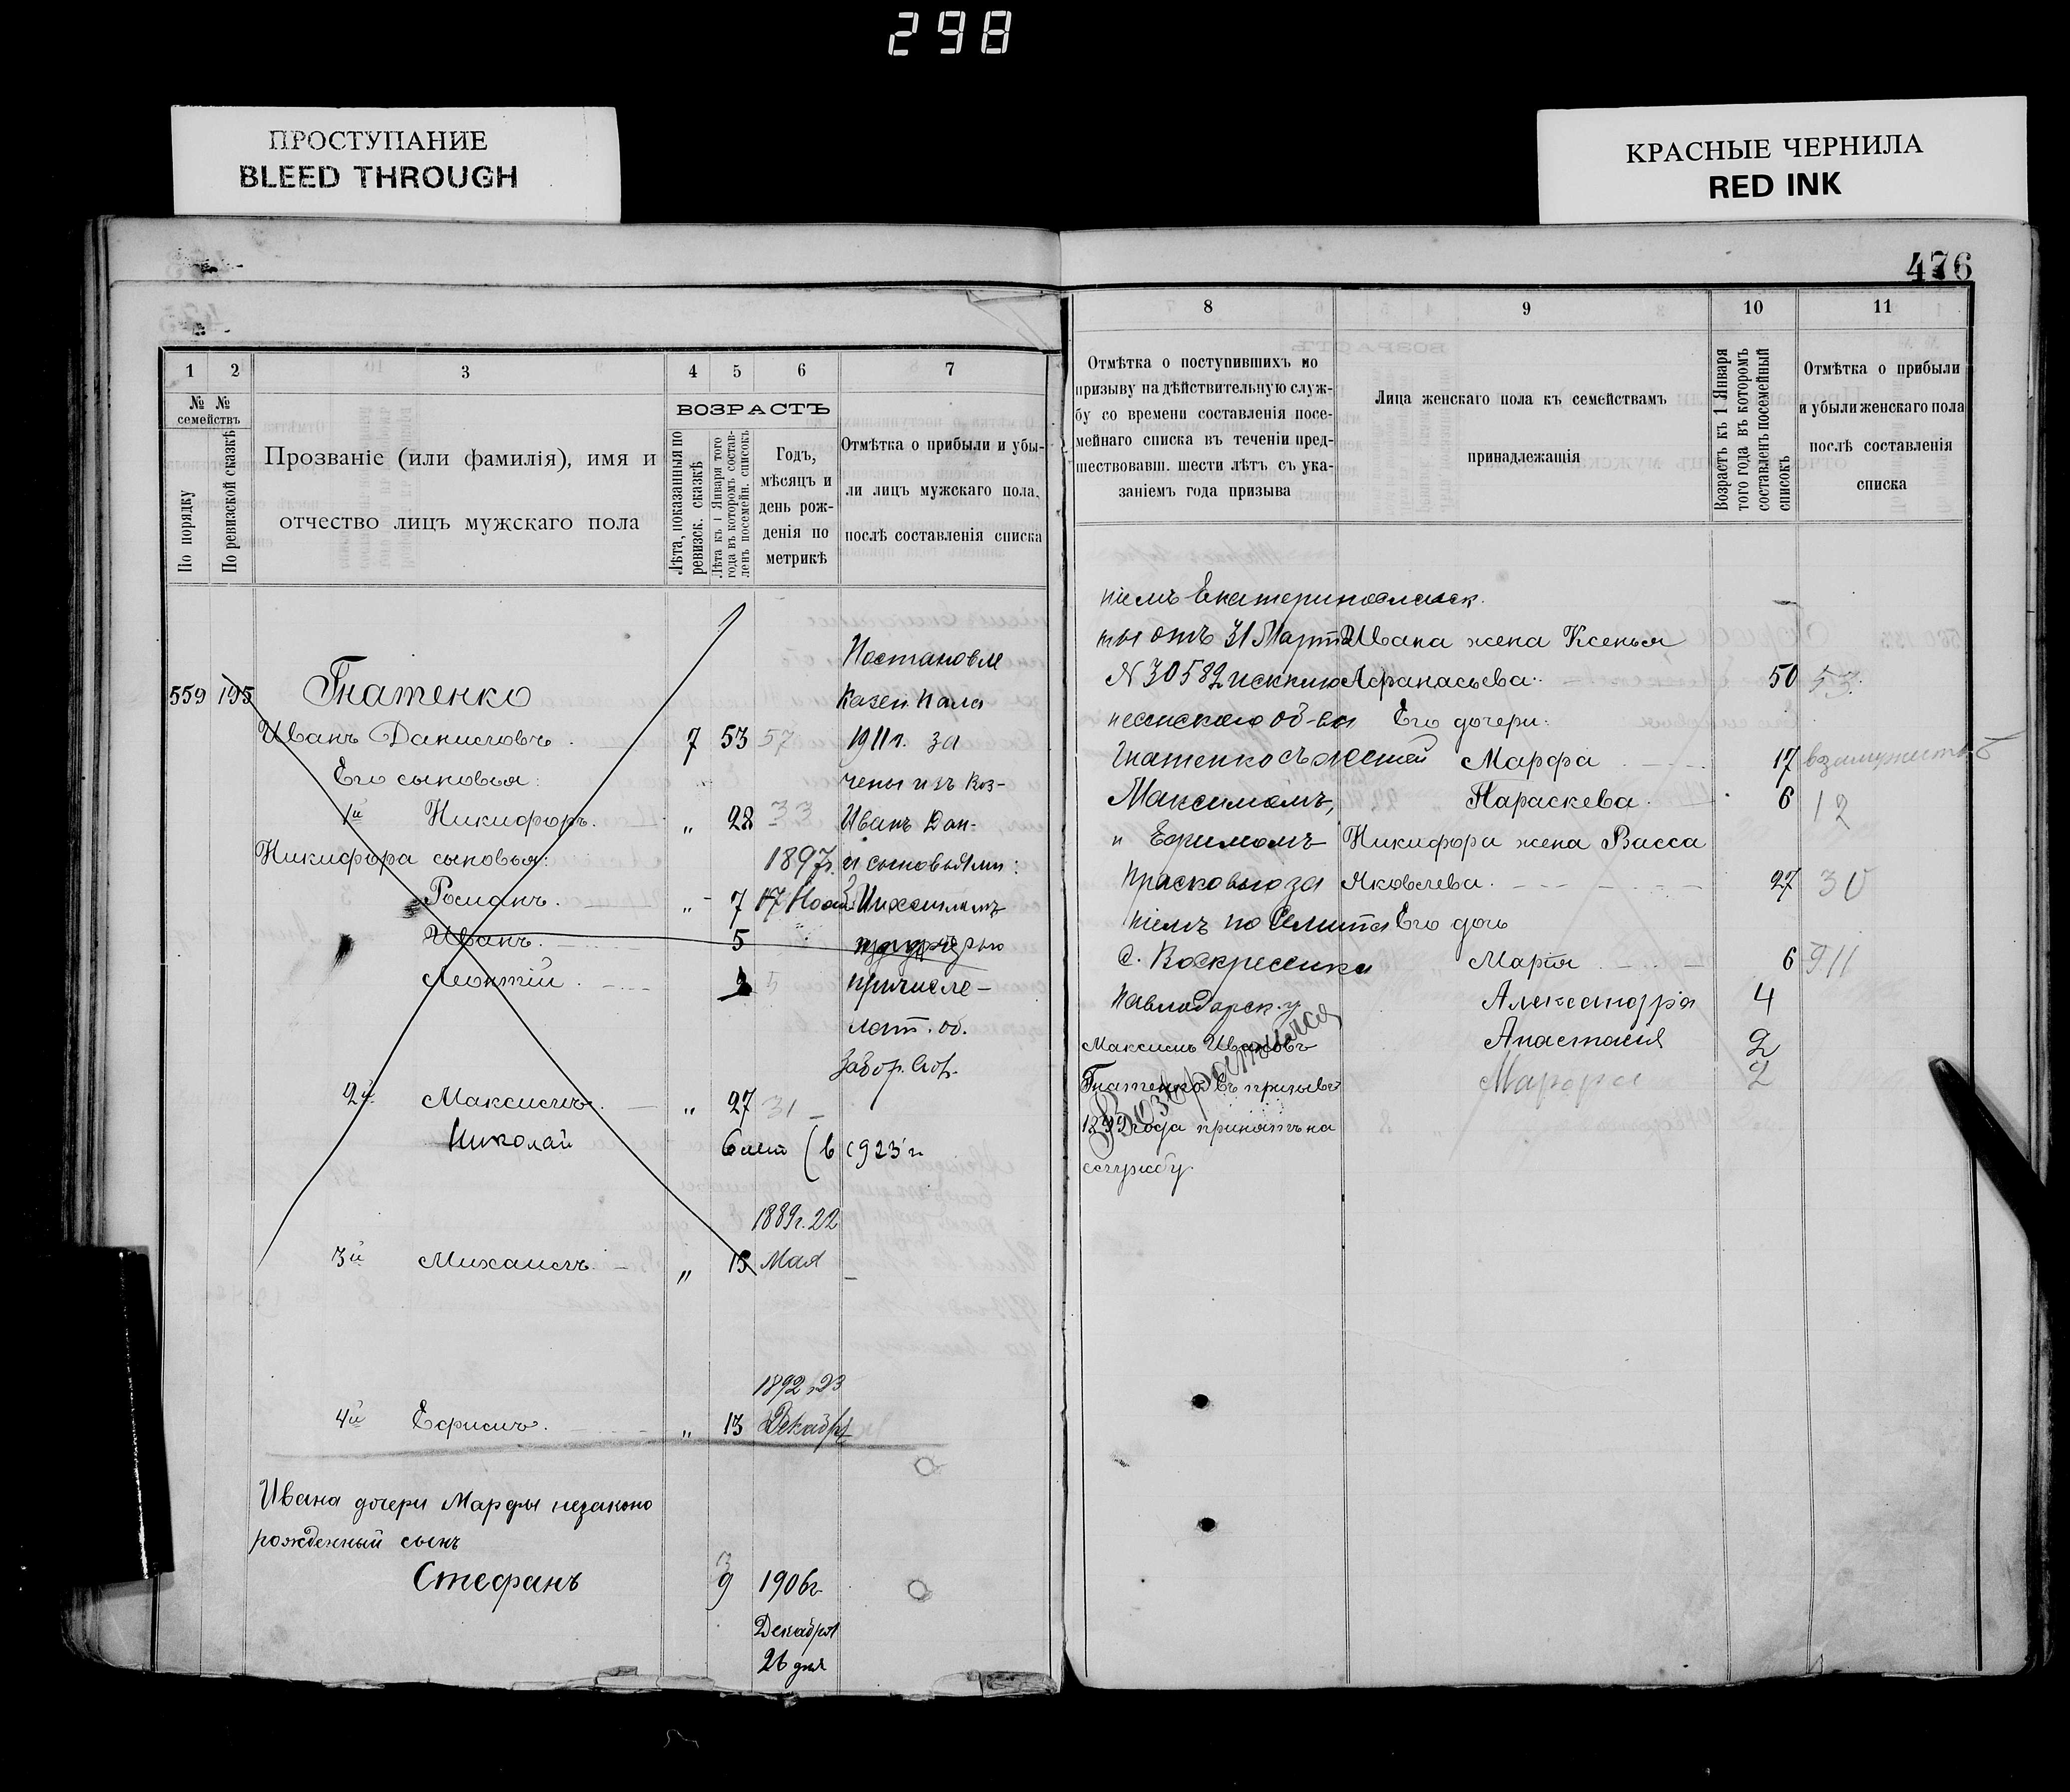 298
ПРОСТУПАНИЕ
BLEED THROUGH
КРАСНЫЕ ЧЕРНИЛА
RED INK
476
1 2 3 4 5 6 7
№ №
семействъ
По порядку
По ревизской сказкѣ
Прозваніе (или фамилія), имя и
отчество лицъ мужскаго пола
ВОЗРАСТЪ
Лѣта, показанныя по
ревизск. сказкѣ
Лѣта къ 1 Января того
года въ которомъ состав-
ленъ посемейн. списокъ
Годъ,
мѣсяцъ и
день рож-
денія по
метрикѣ
Отмѣтка о прибыли и убы-
ли лицъ мужскаго пола,
послѣ составленія списка
Постановле
559 195 Гнатенко Казен. Пала
Иванъ Даниловъ 7 53 57 1911 г. за
Его сыновья: чены изъ Воз-
1й Никифоръ. „ 28 33 Иванъ Дан-
Никифора сыновья: 1897г. и сыновьями:
Романъ. „ 7 17 Михаиломъ
Иванъ. 5
Леонтій 3 5 причисле-
лат. об.
2й Максимъ. „ 27 31
Николай 6 лет (в 1923 г.
1889г. 22
3й Михаилъ. „ 15 Мая
1892 23
4й Ефимъ. „ 13 Декабря
Ивана дочери Марфы незаконо
рожденный сынъ
Стефанъ 3 9 1906г
Декабря
26 дня
8 9 10 11
Отмѣтка о поступившихъ по
призыву на дѣйствительную служ-
бу со времени составленія посе-
мейнаго списка въ теченіи пред-
шествовавш. шести лѣтъ съ ука-
заніемъ года призыва
Лица женскаго пола къ семействамъ
принадлежащія
Возрастъ къ 1 Января
того года въ которомъ
составленъ посемейный
списокъ
Отмѣтка о прибыли
и убыли женскаго пола
послѣ составленія
списка
ніемъ Екатеринославск.
ты отъ 31 Марта Ивана жена Ксенья
N 30582 исклю Афанасьева. 50 53.
несенскаго об-ва Его дочери:
Гнатенко съ женой Марфа 17
Максимомъ, Параскева. 6 12
и Ефимомъ Никифора жена Васса
Прасковью за Яковлева. 27 30
ніемъ по Его дочь
с. Воскресенка Марія 6 9 11
Павлодарск. у. Александра 4
Максимъ Ивановъ Анастасія 2
Гнатенко въ призывъ Марфа 2
года принятъ на
службу
Возвратился